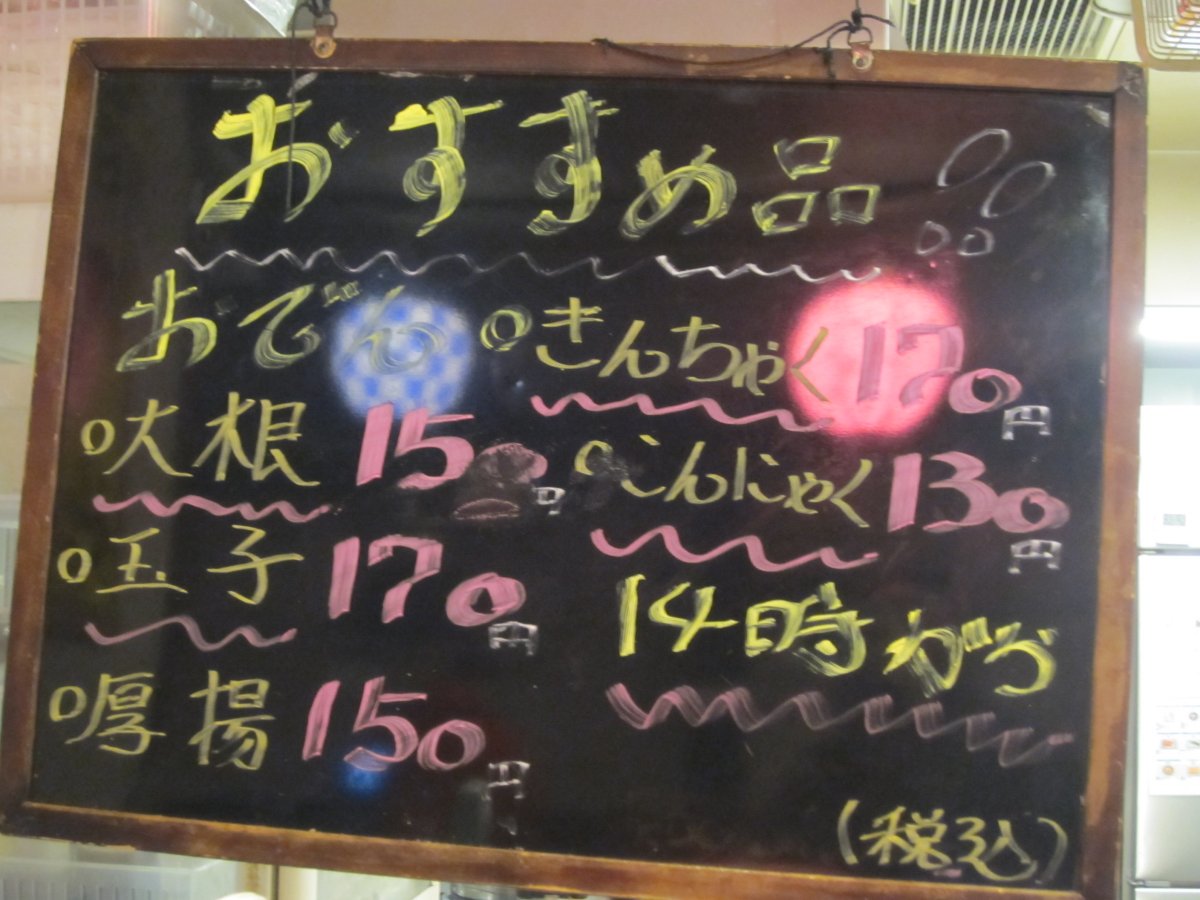 おすすめ品!!
おでん
○大根 150円
○玉子 170円
○厚揚 150円
○きんちゃく 170円
○こんにゃく 130円
14時から
(税込)